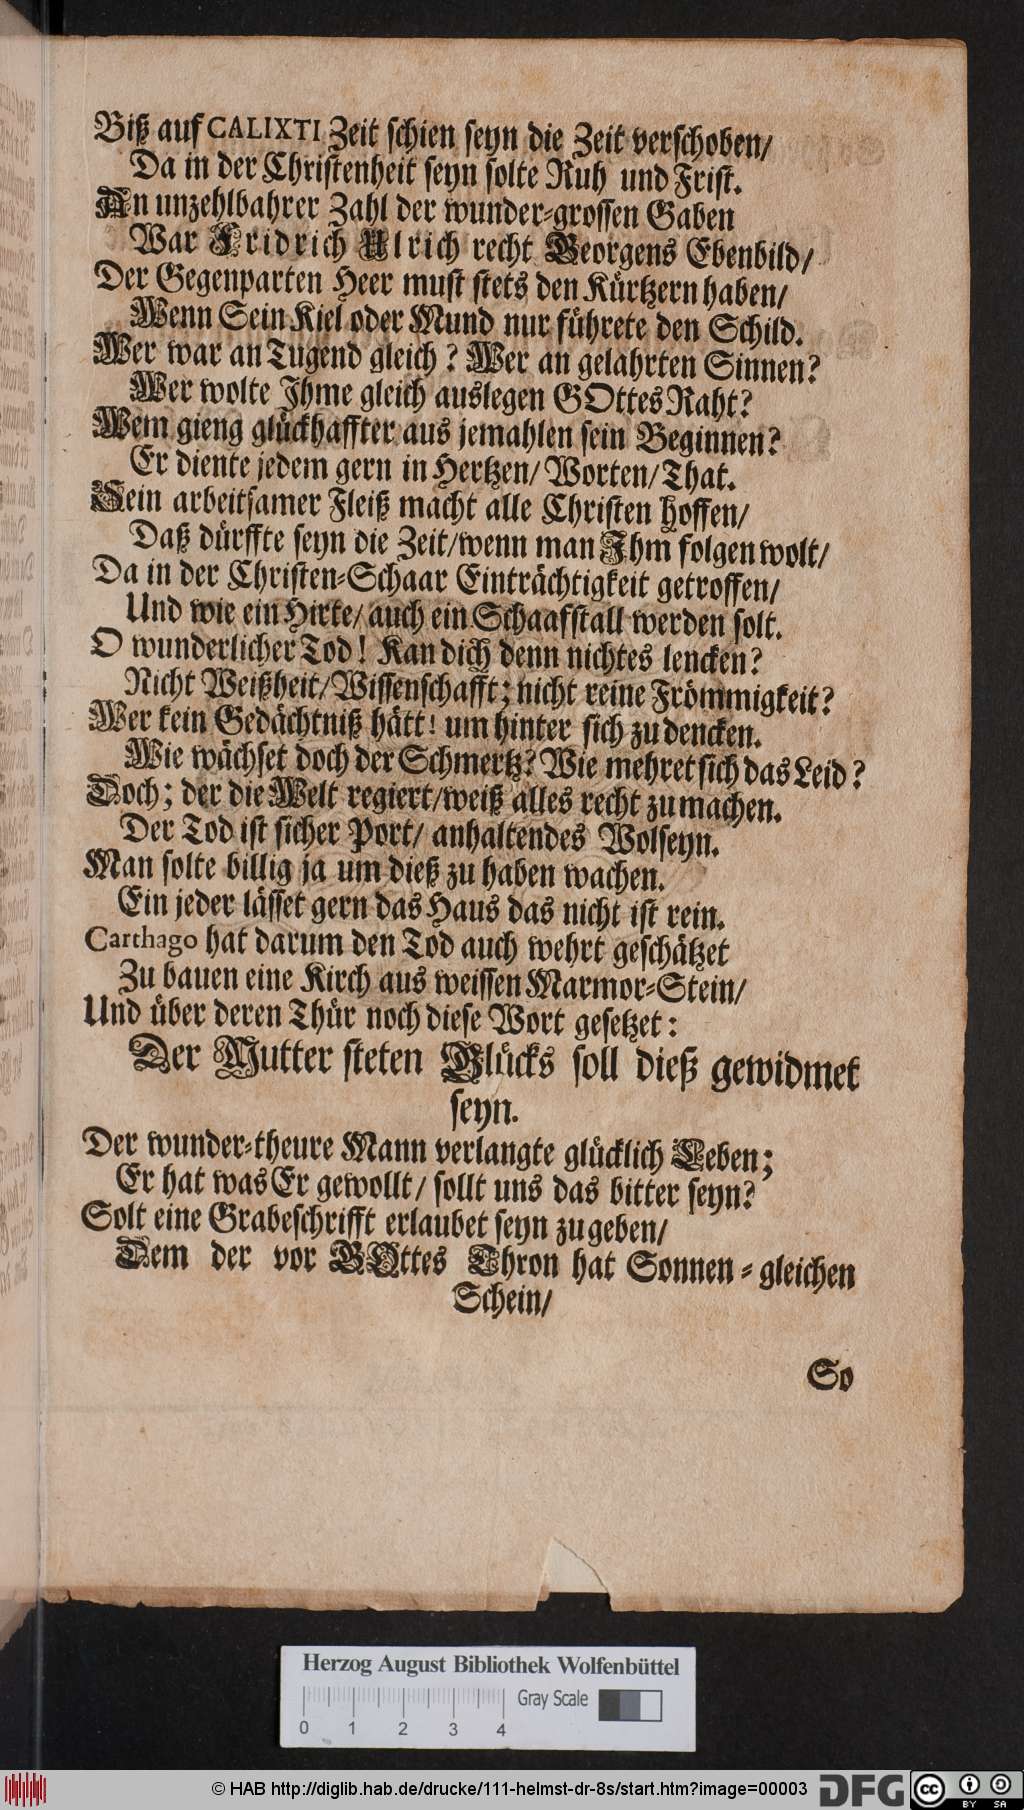 Biß auf CALIXTI Zeit schien seyn die Zeit verschoben/
Da in der Christenheit seyn solte Ruh und Frist.
An unzehlbahrer Zahl der wunder-grossen Gaben
War Fridrich Ulrich recht Georgens Ebenbild/
Der Gegenparten Heer must stets den Kürtzern haben/
Wenn Sein Kiel oder Mund nur führete den Schild.
Wer war an Tugend gleich? Wer an gelahrten Sinnen?
Wer wolte Ihme gleich auslegen GOttes Raht?
Wem gieng glückhaffter aus jemahlen sein Beginnen?
Er diente jedem gern in Hertzen/ Worten/ That.
Sein arbeitsamer Fleiß macht alle Christen hoffen/
Daß dürffte seyn die Zeit/ wenn man Ihm folgen wolt/
Da in der Christen-Schaar Einträchtigkeit getroffen/
Und wie ein Hirte/ auch ein Schaafstall werden solt.
O wunderlicher Tod! Kan dich denn nichtes lencken?
Nicht Weißheit/ Wissenschafft; nicht reine Frömmigkeit?
Wer kein Gedächtniß hätt! um hinter sich zu dencken.
Wie wächset doch der Schmertz? Wie mehret sich das Leid?
Doch; der die Welt regiert/ weiß alles recht zu machen.
Der Tod ist sicher Port/ anhaltendes Wolseyn.
Man solte billig ja um dieß zu haben wachen.
Ein jeder lässet gern das Haus das nicht ist rein.
Carthago hat darum den Tod auch wehrt geschätzet
Zu bauen eine Kirch aus weissen Marmor-Stein/
Und über deren Thür noch diese Wort gesetzet:
Der Mutter steten Glücks soll dieß gewidmet
seyn.
Der wunder-theure Mann verlangte glücklich Leben;
Er hat was Er gewollt/ sollt uns das bitter seyn?
Solt eine Grabeschrifft erlaubet seyn zu geben/
Dem der vor GOttes Thron hat Sonnen-gleichen
Schein/
So
Herzog August Bibliothek Wolfenbüttel
Gray Scale
0 1 2 3 4
© HAB http://diglib.hab.de/drucke/111-helmst-dr-8s/start.htm?image=00003
DFG
cc BY SA